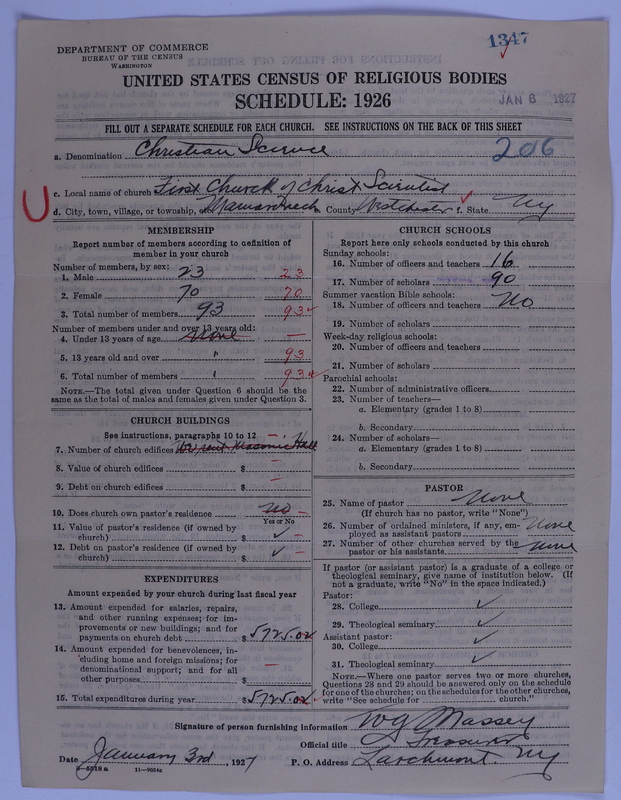 1347
DEPARTMENT OF COMMERCE
BUREAU OF THE CENSUS
WASHINGTON
UNITED STATES CENSUS OF RELIGIOUS BODIES
SCHEDULE: 1926
JAN 8 1927
FILL OUT A SEPARATE SCHEDULE FOR EACH CHURCH. SEE INSTRUCTIONS ON THE BACK OF THIS SHEET
a. Denomination Christian Science 206
c. Local name of church First Church of Christ Scientist
d. City, town, village, or township, Mamaroneck County Westchester f. State NY
MEMBERSHIP
Report number of members according to definition of
member in your church
Number of members, by sex:
1. Male 23 23
2. Female 70 70
3. Total number of members 93 93
Number of members under and over 13 years old:
4. Under 13 years of age None —
5. 13 years old and over " 93
6. Total number of members " 93
NOTE.—The total given under Question 6 should be
same as the total of males and females given under Question 3.
CHURCH BUILDINGS
See instructions, paragraphs 10 to 12 —
7. Number of church edifices We rent Masonic Hall
8. Value of church edifices $ —
9. Debt on church edifices $ —
10. Does church own pastor's residence No —
Yes or No
11. Value of pastor's residence (if owned by
church) $ ✓ —
12. Debt on pastor's residence (if owned by
church) $ ✓ —
EXPENDITURES
Amount expended by your church during last fiscal year
13. Amount expended for salaries, repairs,
and other running expenses; for im-
provements or new buildings; and for
payments on church debt $ 5725.02
14. Amount expended for benevolences, in-
cluding home and foreign missions; for
denominational support; and for all
other purposes $ —
15. Total expenditures during year $ 5725.02
CHURCH SCHOOLS
Report here only schools conducted by this church
Sunday schools:
16. Number of officers and teachers 16
17. Number of scholars 90
Summer vacation Bible schools:
18. Number of officers and teachers No
19. Number of scholars
Week-day religious schools:
20. Number of officers and teachers
21. Number of scholars
Parochial schools:
22. Number of administrative officers
23. Number of teachers—
a. Elementary (grades 1 to 8)
b. Secondary
24. Number of scholars—
a. Elementary (grades 1 to 8)
b. Secondary
PASTOR
25. Name of pastor None
(If church has no pastor, write "None")
26. Number of ordained ministers, if any, em-
ployed as assistant pastors None
27. Number of other churches served by the
pastor or his assistants None
If pastor (or assistant pastor) is a graduate of a college or
theological seminary, give name of institution below. (If
not a graduate, write "No" in the space indicated.)
Pastor:
28. College ✓
29. Theological seminary ✓
Assistant pastor:
30. College ✓
31. Theological seminary ✓
NOTE.—Where one pastor serves two or more churches,
Questions 28 and 29 should be answered only on the schedule
for one of the churches; on the schedules for the other churches,
write "See schedule for church."
Signature of person furnishing information WG Massey
Official title Treasurer
Date January 3rd, 1927 P. O. Address Larchmont NY
8-5518 a 11-9054a